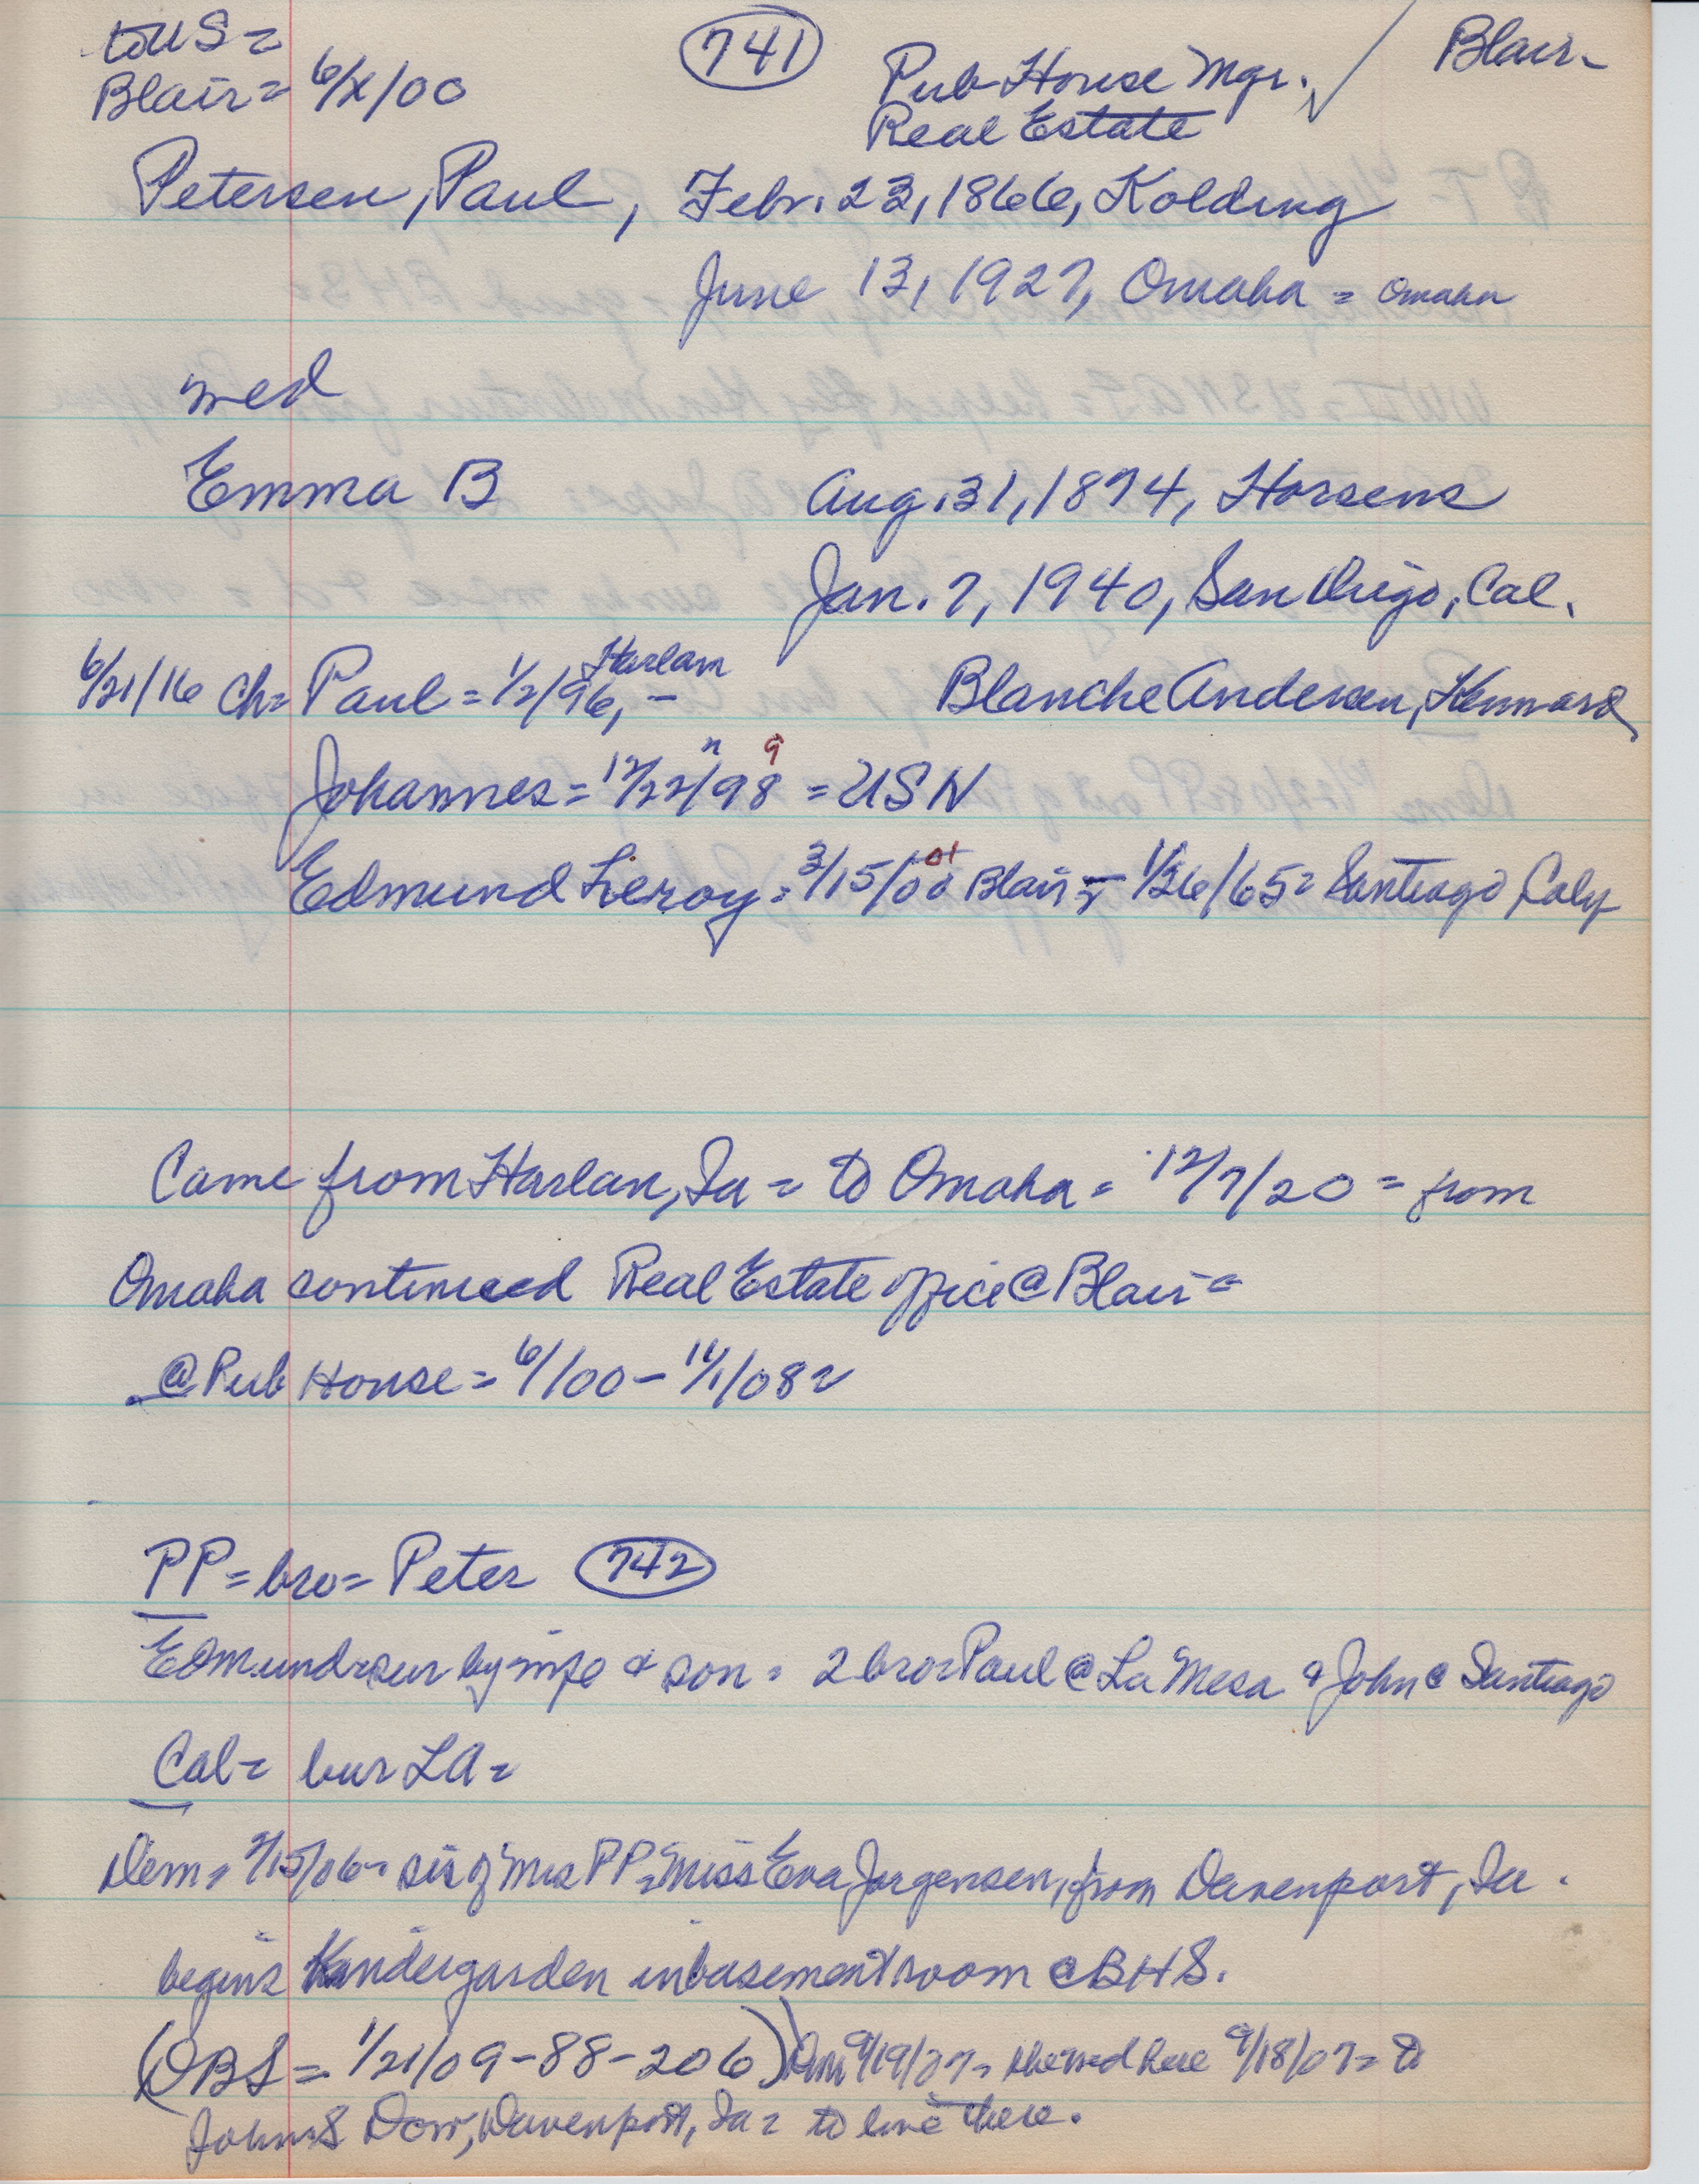 to US =
(741)
Blair.
Blair = 6/x/00
Pub House Mgr. ✓
Real Estate
Petersen, Paul, Febr. 23, 1866, Kolding
June 13, 1927, Omaha = Omaha
med
Emma B Aug. 31, 1874, Horsens
Jan. 7, 1940, San Diego, Cal.
6/21/16 ch = Paul = 1/2/96, - Harlan Blanche Andersen, Kennard
Johannes = 12/22/98 " 9 = USN
Edmund Leroy = 3/15/00 01 Blair = 1/26/65 = Santiago, Caly
Came from Harlan, Ia = to Omaha = 12/7/20 = from
Omaha continued Real Estate office @ Blair =
@ Pub House = 6/00 - 11/1/08 =
PP = bro = Peter (742)
Edmund = sur by wife & son = 2 bro = Paul @ La Mesa & John @ Santiago
Cal = bur LA =
Dem = /15/06 = sis of Mrs PP = Miss Eva Jorgensen, from Davenport, Ia.
begins Kindergarden in basement room @ BHS.
(DBS = 1/21/09-88-206) 9/19/07 = she med here 9/18/07 = to
John S Dorr, Davenport, Ia = to live there.